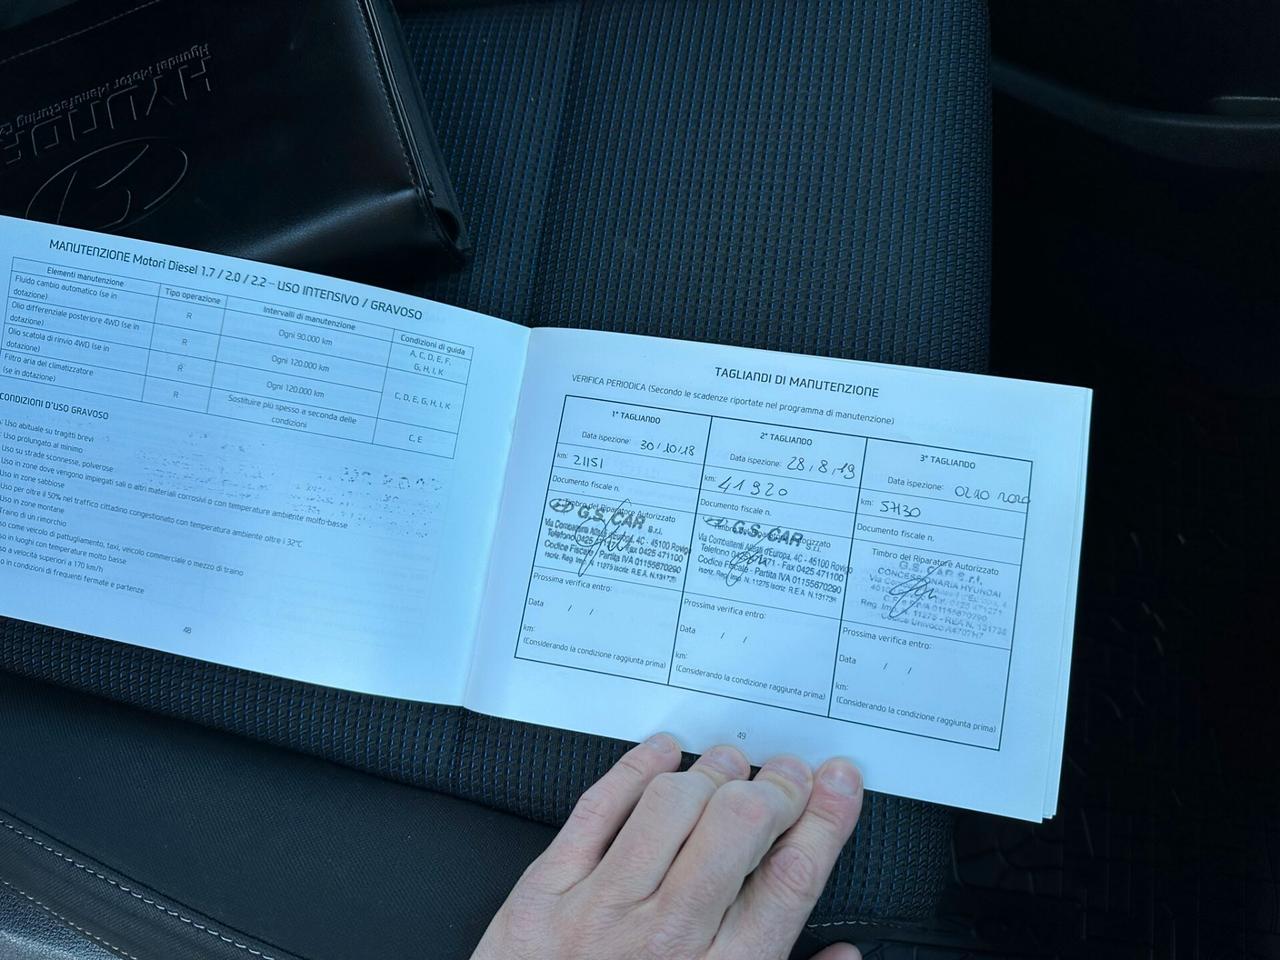 HYUNDAI
Hyundai Motor Manufacturing
MANUTENZIONE Motori Diesel 1.7 / 2.0 / 2.2 – USO INTENSIVO / GRAVOSO
Elementi manutenzione
Tipo operazione
Intervalli di manutenzione
Condizioni di guida
Fluido cambio automatico (se in
dotazione)
R
Ogni 90.000 km
A, C, D, E, F,
G, H, I, K
Olio differenziale posteriore 4WD (se in
dotazione)
R
Ogni 120.000 km
Olio scatola di rinvio 4WD (se in
dotazione)
R
Ogni 120.000 km
C, D, E, G, H, I, K
Filtro aria del climatizzatore
(se in dotazione)
R
Sostituire più spesso a seconda delle
condizioni
C, E
CONDIZIONI D'USO GRAVOSO
Uso abituale su tragitti brevi
Uso prolungato al minimo
Uso su strade sconnesse, polverose
Uso in zone dove vengono impiegati sali o altri materiali corrosivi o con temperature ambiente molto basse
Uso in zone sabbiose
Uso per oltre il 50% nel traffico cittadino congestionato con temperatura ambiente oltre i 32°C
Uso in zone montane
Traino di un rimorchio
come veicolo di pattugliamento, taxi, veicolo commerciale o mezzo di traino
in luoghi con temperature molto basse
a velocità superiori a 170 km/h
in condizioni di frequenti fermate e partenze
48
TAGLIANDI DI MANUTENZIONE
VERIFICA PERIODICA (Secondo le scadenze riportate nel programma di manutenzione)
1° TAGLIANDO
Data ispezione: 30/10/18
km: 21151
Documento fiscale n.
Timbro del Riparatore Autorizzato
G.S. CAR S.r.l.
Via Combattenti Alleati d'Europa, 4C - 45100 Rovigo
Telefono 0425 Fax 0425 471100
Codice Fiscale / Partita IVA 01155670290
Iscriz. Reg. Imp. N. 11275 Iscriz. R.E.A. N.
Prossima verifica entro:
Data / /
km:
(Considerando la condizione raggiunta prima)
2° TAGLIANDO
Data ispezione: 28/8/19
km: 41920
Documento fiscale n.
G.S. CAR S.r.l.
Via Combattenti Alleati d'Europa, 4C - 45100 Rovigo
Telefono Fax 0425 471100
Codice Fiscale - Partita IVA 01155670290
Iscriz. Reg. Imp. N. 11275 Iscriz. R.E.A. N.
Prossima verifica entro:
Data / /
km:
(Considerando la condizione raggiunta prima)
3° TAGLIANDO
Data ispezione:
km: 57130
Documento fiscale n.
Timbro del Riparatore Autorizzato
G.S. CAR s.r.l.
CONCESSIONARIA HYUNDAI
Prossima verifica entro:
Data / /
km:
(Considerando la condizione raggiunta prima)
49